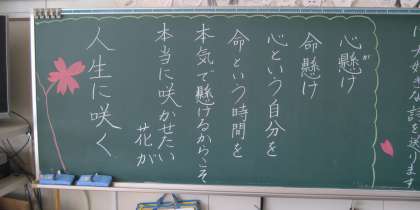 詩を送ります
心懸け
が
命懸け
心という自分を
命という時間を
本気で懸けるからこそ
本当に咲かせたい
花が
人生に咲く